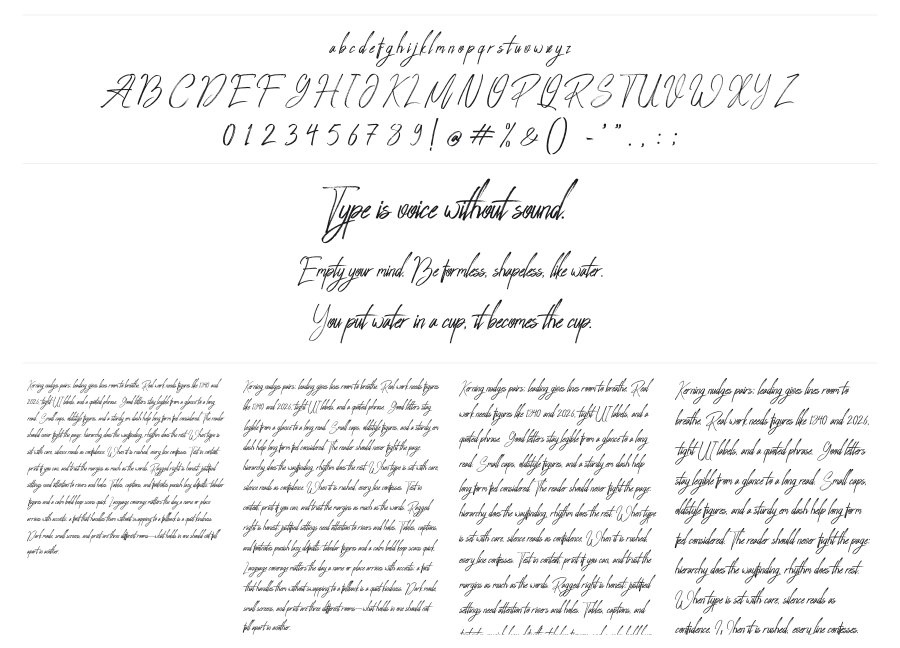 abcdefghijklmnopqrstuvwxyz
ABCDEFGHIJKLMNOPQRSTUVWXYZ
0123456789!@#%&() -'".,:;
Type is voice without sound.
Empty your mind. Be formless, shapeless, like water.
You put water in a cup, it becomes the cup.
Kerning nudges pairs; leading gives lines room to breathe. Real work needs figures like 1,940 and
2026, tight UI labels, and a quoted phrase. Good letters stay legible from a glance to a long
read. Small caps, oldstyle figures, and a sturdy em dash help long form feel considered. The reader
should never fight the page; hierarchy does the wayfinding, rhythm does the rest. When type is
set with care, silence reads as confidence. When it is rushed, every line confesses. Test in context,
print if you can, and trust the margins as much as the words. Ragged right is honest; justified
settings need attention to rivers and holes. Tables, captions, and footnotes punish lazy defaults; tabular
figures and a calm bold keep scans quick. Language coverage matters the day a name or place
arrives with accents; a font that handles them without swapping to a fallback is a quiet kindness.
Dark mode, small screens, and print are three different rooms—what holds in one should not fall
apart in another.
Kerning nudges pairs; leading gives lines room to breathe. Real work needs figures
like 1,940 and 2026, tight UI labels, and a quoted phrase. Good letters stay
legible from a glance to a long read. Small caps, oldstyle figures, and a sturdy em
dash help long form feel considered. The reader should never fight the page;
hierarchy does the wayfinding, rhythm does the rest. When type is set with care,
silence reads as confidence. When it is rushed, every line confesses. Test in
context, print if you can, and trust the margins as much as the words. Ragged
right is honest; justified settings need attention to rivers and holes. Tables, captions,
and footnotes punish lazy defaults; tabular figures and a calm bold keep scans quick.
Language coverage matters the day a name or place arrives with accents; a font
that handles them without swapping to a fallback is a quiet kindness. Dark mode,
small screens, and print are three different rooms—what holds in one should not
fall apart in another.
Kerning nudges pairs; leading gives lines room to breathe. Real
work needs figures like 1,940 and 2026, tight UI labels, and a
quoted phrase. Good letters stay legible from a glance to a long
read. Small caps, oldstyle figures, and a sturdy em dash help
long form feel considered. The reader should never fight the page;
hierarchy does the wayfinding, rhythm does the rest. When type
is set with care, silence reads as confidence. When it is rushed,
every line confesses. Test in context, print if you can, and trust the
margins as much as the words. Ragged right is honest; justified
settings need attention to rivers and holes. Tables, captions, and
Kerning nudges pairs; leading gives lines room to
breathe. Real work needs figures like 1,940 and 2026,
tight UI labels, and a quoted phrase. Good letters
stay legible from a glance to a long read. Small caps,
oldstyle figures, and a sturdy em dash help long form
feel considered. The reader should never fight the page;
hierarchy does the wayfinding, rhythm does the rest.
When type is set with care, silence reads as
confidence. When it is rushed, every line confesses.